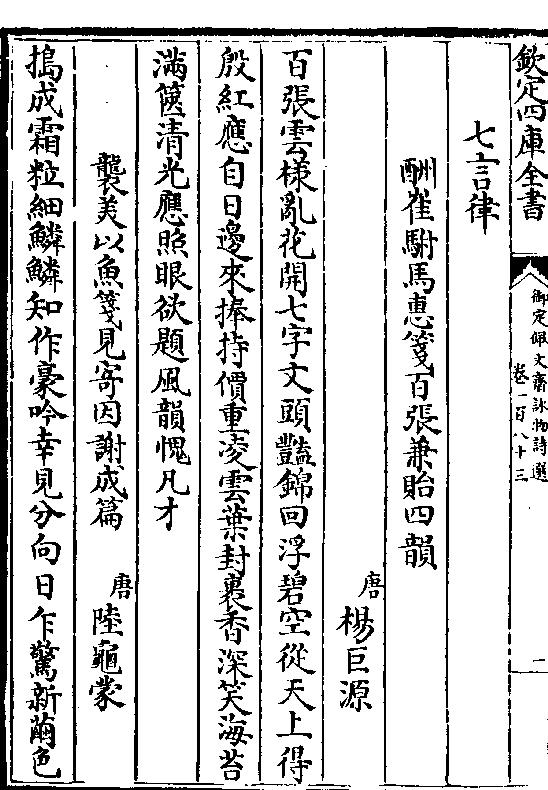 欽定四庫全書
御定佩文齋詠物詩選
卷一百八十三
二
七言律
酬崔駙馬惠箋百張兼貽四韻
唐 楊巨源
百張雲様亂花開七字文頭豔錦回浮碧空從天上得
殷紅應自日邊來捧持價重凌雲葉封裹香深笑海苔
滿篋清光應照眼欲題風韻愧凡才
襲美以魚箋見寄因謝成篇
唐 陸龜蒙
搗成霜粒細鱗鱗知作豪吟幸見分向日乍驚新繭色